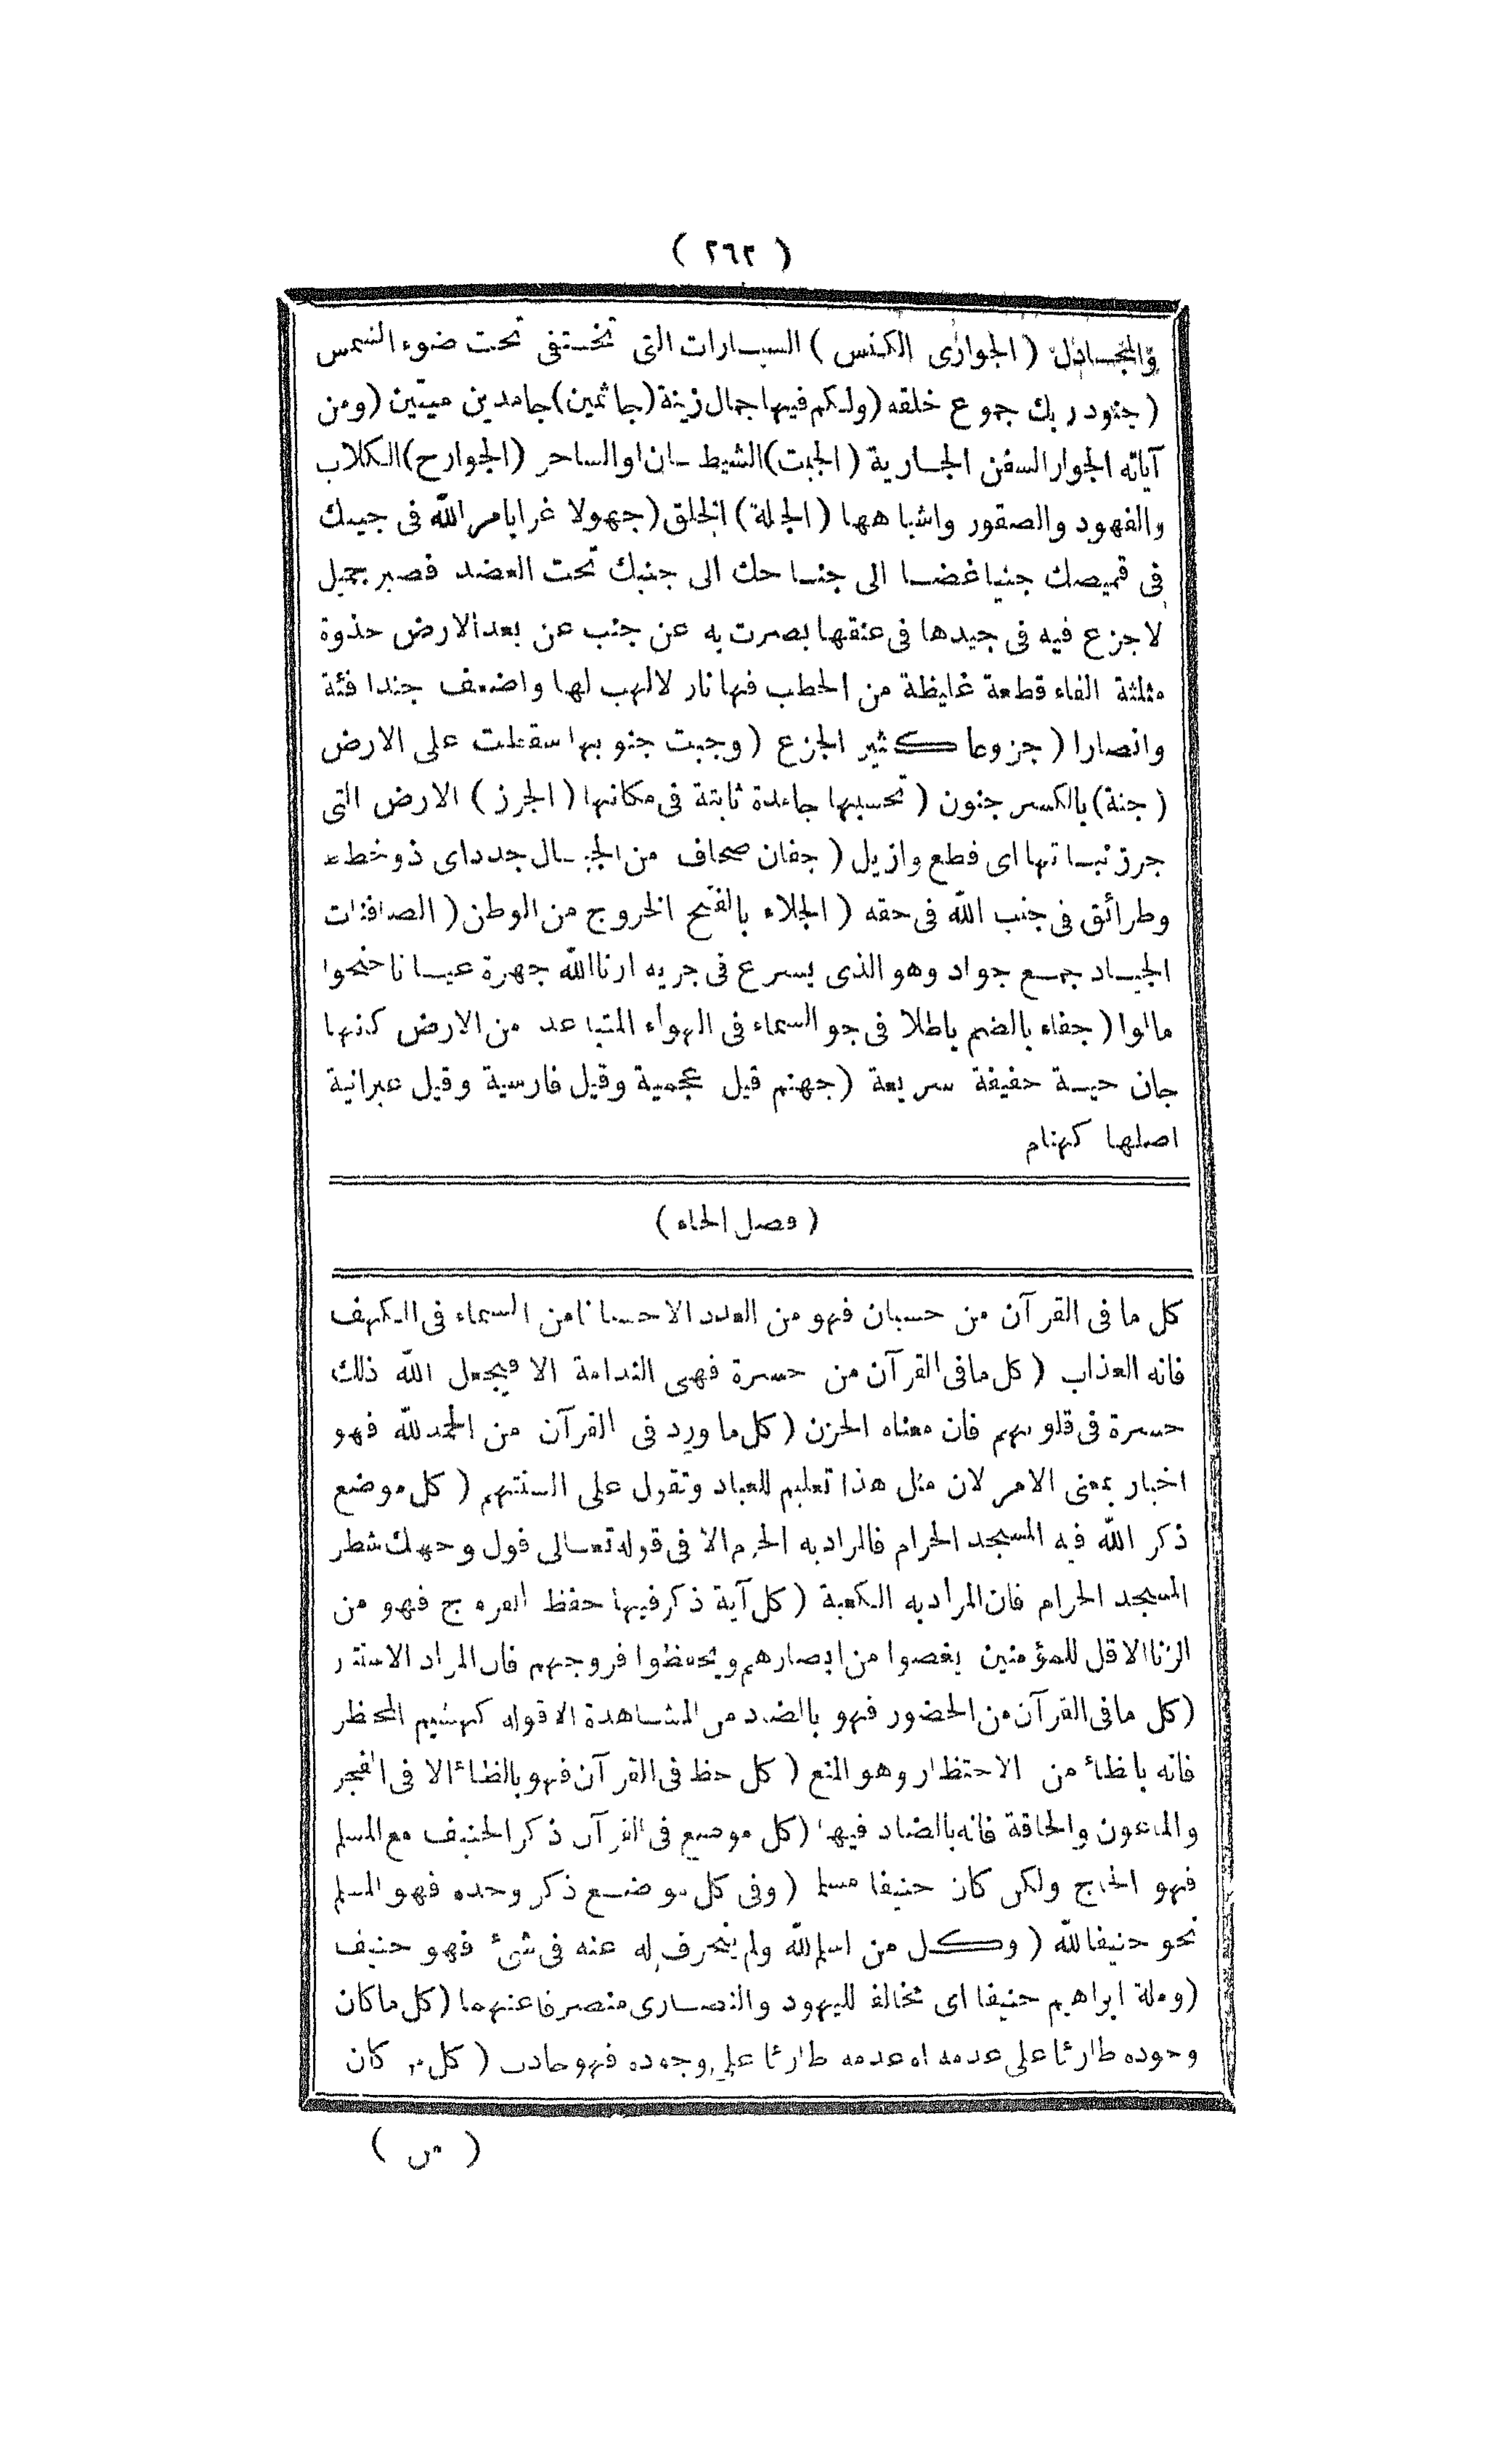 ( ٢٦٢ )
والمجادل ( الجوارى الكنس ) السيارات التى تختفى تحت ضوء الشمس
( جنود ربك جموع خلقه ( ولكم فيها جمال زينة ( جاثمين ) جامدين ميتين ( ومن
آياته الجوار السفن الجارية ( الجبت ) الشيطان او الساحر ( الجوارح ) الكلاب
والفهود والصقور واشباهها ( الجبلة ) الخلق ( جهولا غرا بامر الله فى جيبك
فى قميصك جنيا غضا الى جناحك الى جنبك تحت العضد فصبر جميل
لا جزع فيه فى جيدها فى عنقها بصرت به عن جنب عن بعد الارض جذوة
مثلثة الفاء قطعة غليظة من الحطب فيها نار لا لهب لها واضعف جندا فئة
وانصارا ( جزوعا كثير الجزع ( وجبت جنوبها سقطت على الارض
( جنة ) بالكسر جنون ( تحسبها جامدة ثابتة فى مكانها ( الجرز ) الارض التى
جرز نباتها اى قطع وازيل ( جفان صحاف من الجبال جدد اى ذو خطط
وطرائق فى جنب الله فى حقه ( الجلاء بالفتح الخروج من الوطن ( الصافنات
الجياد جمع جواد وهو الذى يسرع فى جريه ارنا الله جهرة عيانا جنحوا
مالوا ( جفاء بالضم باطلا فى جو السماء فى الهواء المتباعد من الارض كانها
جان حية خفيفة سريعة ( جهنم قيل عجمية وقيل فارسية وقيل عبرانية
اصلها كهنام
( فصل الحاء )
كل ما فى القرآن من حسبان فهو من العدد الا حسبانا من السماء فى الكهف
فانه العذاب ( كل ما فى القرآن من حسرة فهى الندامة الا ليجعل الله ذلك
حسرة فى قلوبهم فان معناه الحزن ( كل ما ورد فى القرآن من الحمد لله فهو
اخبار بمعنى الامر لان مثل هذا تعليم للعباد وتقول على السنتهم ( كل موضع
ذكر الله فيه المسجد الحرام فالمراد به الحرم الا فى قوله تعالى فول وجهك شطر
المسجد الحرام فان المراد به الكعبة ( كل آية ذكر فيها حفظ الفروج فهو من
الزنا الا قل للمؤمنين يغضوا من ابصارهم ويحفظوا فروجهم فان المراد الاستتار
( كل ما فى القرآن من الحضور فهو بالضاد من المشاهدة الا قوله كهشيم المحظر
فانه باظاء من الاحتظار وهو المنع ( كل حظ فى القرآن فهو بالظاء الا فى الفجر
والماعون والحاقة فانه بالضاد فيها ( كل موضع فى القرآن ذكر الحنيف مع المسلم
فهو الحاج ولكن كان حنيفا مسلما ( وفى كل موضع ذكر وحده فهو المسلم
نحو حنيفا لله ( وكل من اسلم لله ولم ينحرف له عنه فى شئ فهو حنيف
( وملة ابراهيم حنيفا اى مخالفا لليهود والنصارى منصرفا عنهما ( كل ما كان
وجوده طارئا على عدمه او عدمه طارئا على وجوده فهو حادث ( كل من كان
( من )